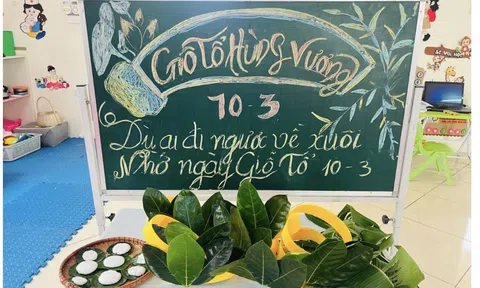 Giỗ Tổ Hùng Vương
10-3
Dù ai đi ngược về xuôi
Nhớ ngày Giỗ Tổ 10-3